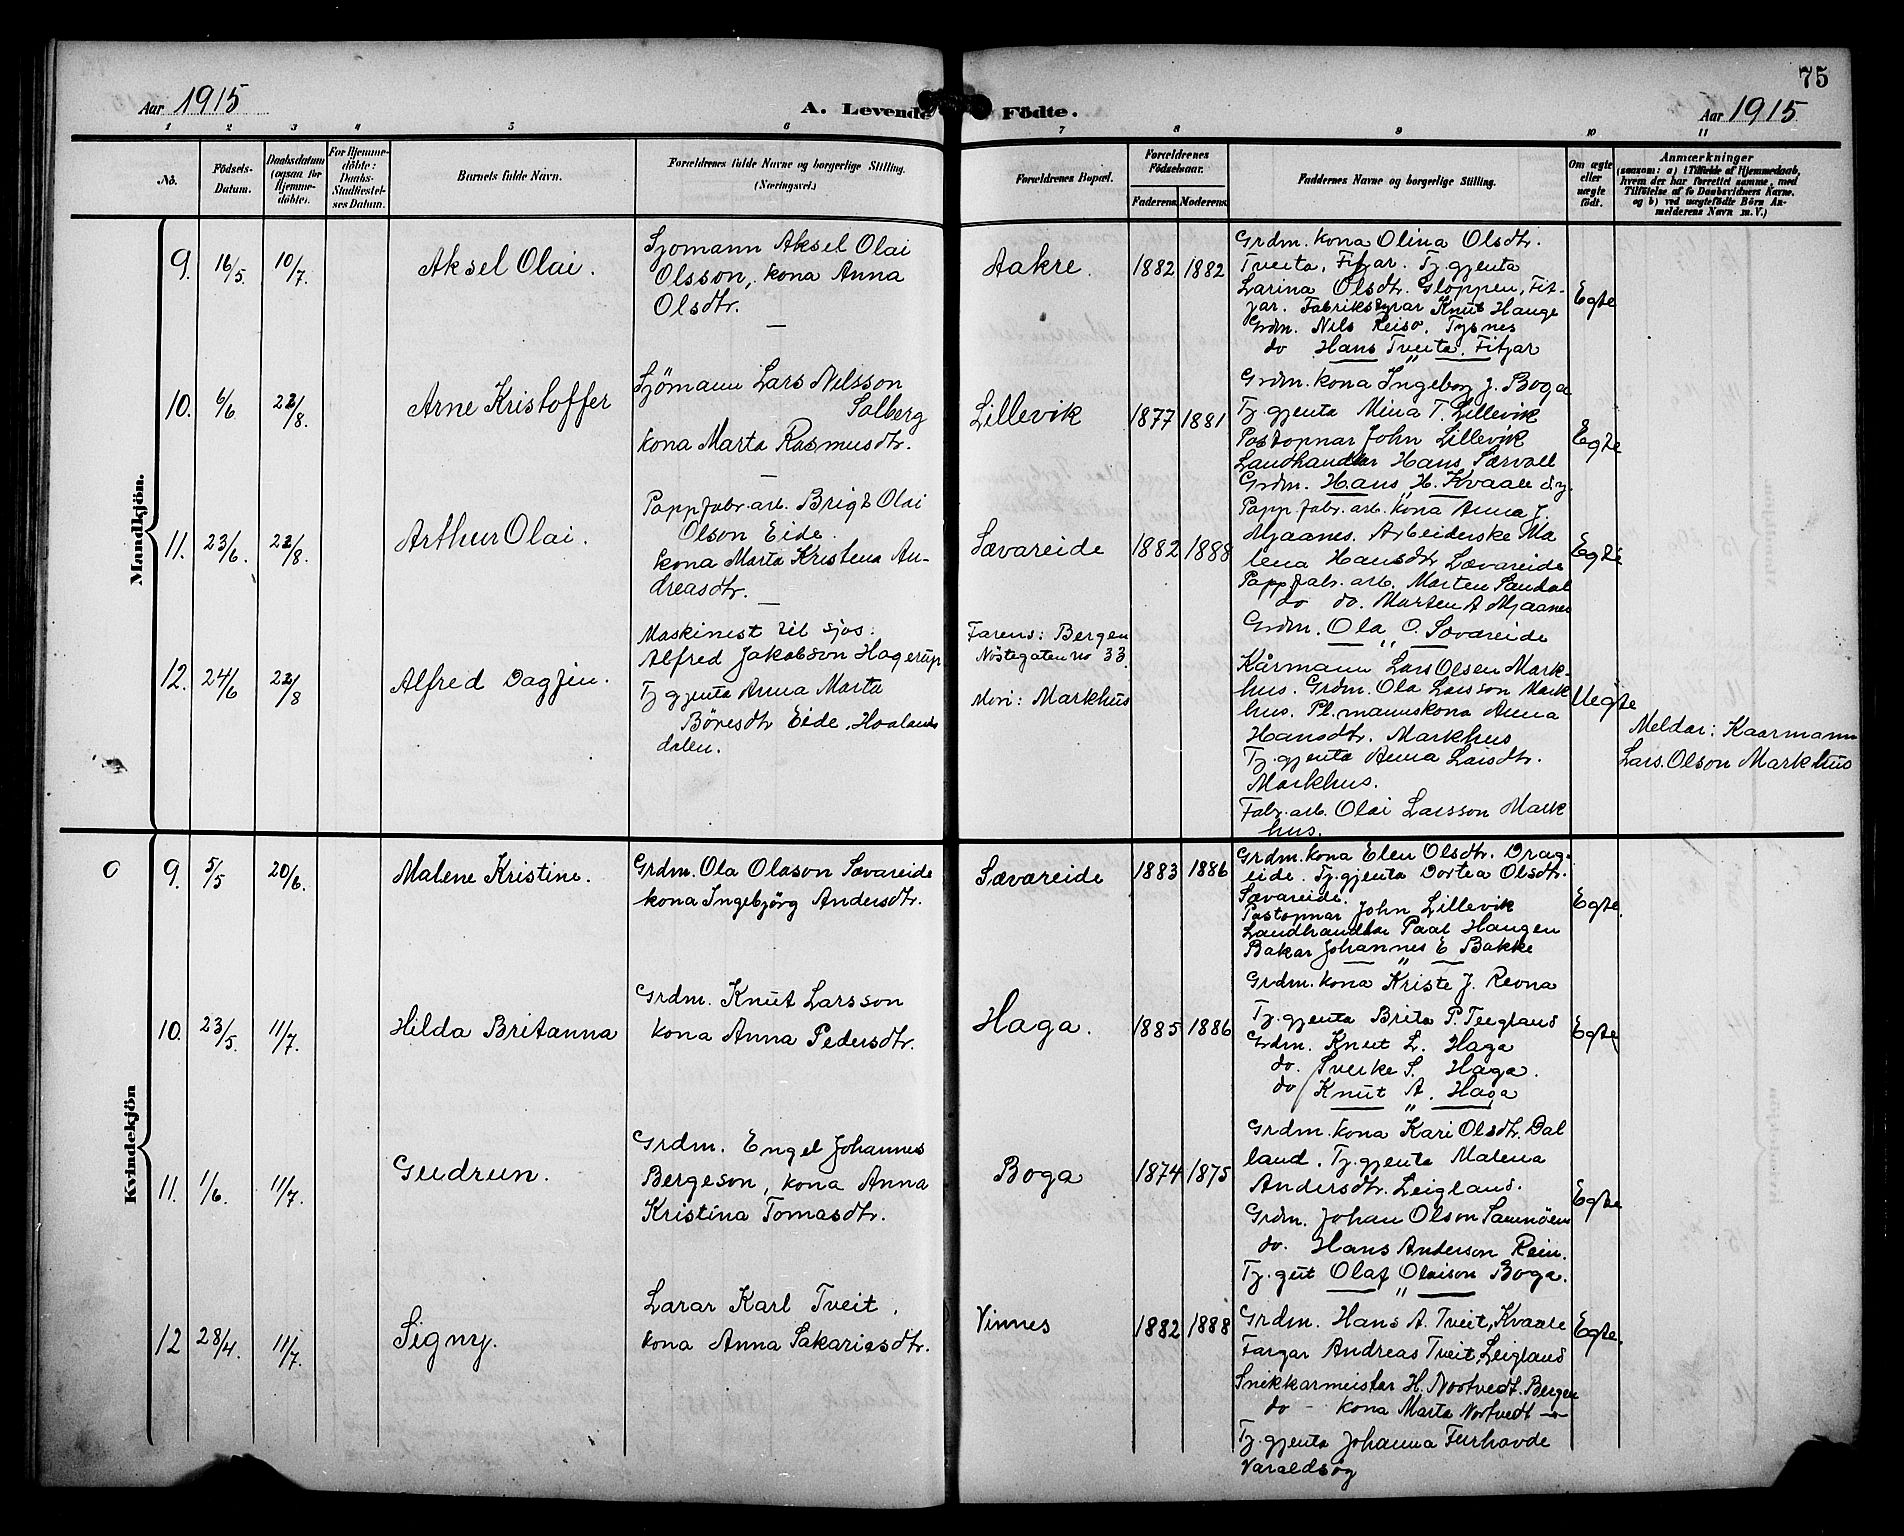 75
Aar 1915
A. Levende Födte.
Aar 1915
1 2 3 4 5 6 7 8 9 10 11
No.
Födsels-
Datum.
Daabsdatum
(ogsaa for
Hjemme-
döbte).
For Hjemme-
döbte:
Daabs-
Stadfæstel-
ses Datum.
Barnets fulde Navn.
Forældrenes fulde Navne og borgerlige Stilling.
(Næringsvei.)
Forældrenes Bopæl.
Forældrenes
Födselsaar.
Faderens. Moderens.
Faddernes Navne og borgerlige Stilling.
Om ægte
eller
uægte
født.
Anmærkninger
(saasom: a) i Tilfælde af Hjemmedaab,
hvem der har forrettet samme, med
Tilföielse af to Daabsvidners Navne,
og b) ved uægtefödte Börn An-
melderens Navn m. V.)
Mandkjön.
9. 16/5. 10/7. Aksel Olai.
Sjomann Aksel Olai
Olsson, kona Anna
Olsdtr.
Aakre. 1882 1882
Grdm. kona Olina Olsdtr.
Tveita, Fitjar. Tj. gjenta
Larina Olsdtr. Gloppen, Fit-
jar. Fabrikstyrar Knut Hauge
Grdm. Nils Reiso, Tysnes
do Hans Tveita, Fitjar
Egte
10. 6/6 22/8. Arne Kristoffer
Sjömann Lars Nilsson
Solberg
kona Marta Rasmusdtr.
Lillevik 1877 1881
Grdm. kona Ingeborg J. Boga
Tj. gjenta Mina T. Lillevik
Postopnar John Lillevik
Landhandlar Hans Særvoll
Grdm. Hans H. Kvaale
Egte
11. 23/6. 22/8. Arthur Olai.
Papp fabr. arb. Brigt Olai
Olson Eide.
kona Marta Kristena An-
dreasdtr.
Sævareide 1882 1888
Papp fabr. arb. kona Anna J.
Mjaanes. Arbeiderske Ma
lena Hansdtr Sævareide
Papp fabr. arb. Morten Sandal
do do. Morten A Mjaanes
Grdm. Ola O. Sævareide
Egte
12. 24/6 22/8 Alfred Dagfin.
Maskinist til sjos:
Alfred Jakobson Hagerup
Tj gjenta Anna Marta
Böresdtr Eide, Hoalands
dalen.
Farens: Bergen
Nöstegaten no 33.
Mori: Markhus
Kårmann Lars Olsen Mark-
hus. Grdm. Ola Larsson Mark
hus. Pl. mannskona Anna
Hansdtr. Markhus
Tj. gjenta Anna Larsdtr.
Markhus.
Fabr. arb. Olai Larsson Mark
hus.
Uegte
Meldar: Kaarmann
Lars Olson Markhus
Kvindekjön
0 9. 5/5 20/6. Malene Kristine.
Grdm. Ola Olason Sævareide
kona Ingebjörg Andersdtr.
Sævareide 1883 1886
Grdm. kona Elen Olsdtr. Drag-
eide. Tj. gjenta Dortea Olsdtr.
Sævareide.
Postopnar John Lillevik
Landhandlar Paal Haugen
Bakar Johannes E Bakke
Egte.
10. 23/5. 11/7. Hilda Britanna
Grdm. Knut Larsson
kona Anna Pedersdtr.
Haga. 1885 1886
Grdm. kona Kriste J. Revna
Tj. gjenta Brita P. Teigland
Grdm. Knut L. Haga
do. Sverke S. Haga.
do Knut A. Haga
Egte
11. 1/6. 11/7. Gudrun.
Grdm. Engel Johannes
Bergeson, kona Anna
Kristina Tomasdtr.
Boga 1874 1875
Grdm. kona Kari Olsdtr. Dal
land. Tj. gjenta Malena
Andersdtr. Leigland.
Grdm. Johan Olson Samnöen
do. Hans Anderson Rein.
Tj. gut Olaf Olaison Boga.
Egte
12 28/4. 11/7. Signy.
Lærar Karl Tveit,
kona Anna Sakariasdtr.
Vinnes 1882 1888
Grdm. Hans A. Tveit, Kvaale
Fargar Andreas Tveit, Leigland
Snikkarmeister H. Nortvedt. Bergen
do - kona Marta Nortvedt -"-
Tj. gjenta Johanna Furhovde
Varaldsög
Egte.